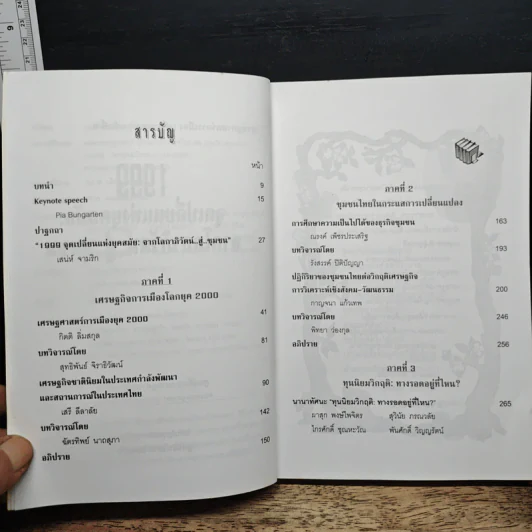 สารบัญ
หน้า
บทนำ 9
Keynote speech 15
Pia Bungarten
ปาฐกถา
"1999 จุดเปลี่ยนแห่งยุคสมัย: จากโลกาภิวัตน์..สู่..ชุมชน" 27
เสน่ห์ จามริก
ภาคที่ 1
เศรษฐกิจการเมืองโลกยุค 2000
เศรษฐศาสตร์การเมืองยุค 2000 41
กิตติ ลิ่มสกุล
บทวิจารณ์โดย 81
สุทธิพันธ์ จิราธิวัฒน์
เศรษฐกิจชาตินิยมในประเทศกำลังพัฒนา
และสถานการณ์ในประเทศไทย 90
เสรี ลีลาลัย
บทวิจารณ์โดย 142
ฉัตรทิพย์ นาถสุภา
อภิปราย 150
ภาคที่ 2
ชุมชนไทยในกระแสการเปลี่ยนแปลง
การศึกษาความเป็นไปได้ของธุรกิจชุมชน 163
ณรงค์ เพ็ชรประเสริฐ
บทวิจารณ์โดย 193
รังสรรค์ ปิติปัญญา
ปฏิกิริยาของชุมชนไทยต่อวิกฤติเศรษฐกิจ
การวิเคราะห์เชิงสังคม-วัฒนธรรม 200
กาญจนา แก้วเทพ
บทวิจารณ์โดย 246
พิทยา ว่องกุล
อภิปราย 256
ภาคที่ 3
ทุนนิยมวิกฤติ: ทางรอดอยู่ที่ไหน?
นานาทัศนะ "ทุนนิยมวิกฤติ: ทางรอดอยู่ที่ไหน?" 265
ผาสุก พงษ์ไพจิตร สุวินัย ภรณวลัย
ไกรศักดิ์ ชุณหะวัณ พันศักดิ์ วิญญรัตน์